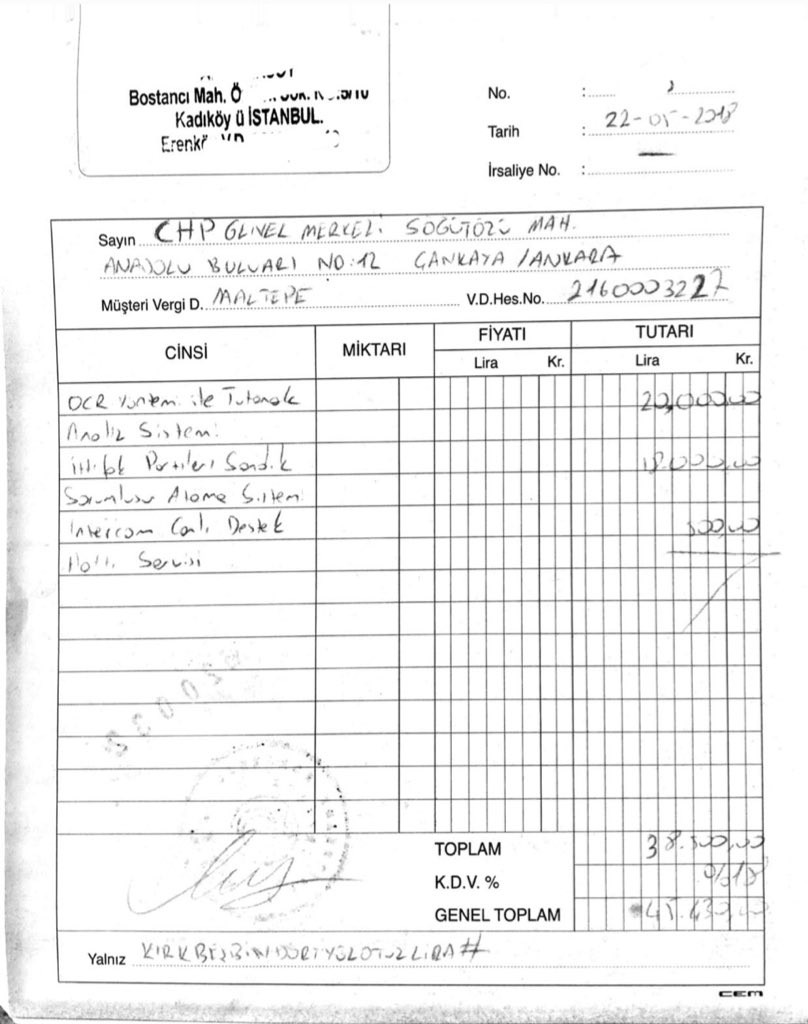 Bostancı Mah. Ö
Kadıköy ü İSTANBUL.
No. :
Tarih : 22-05-2018
İrsaliye No. : —
Sayın CHP GENEL MERKEZİ SÖĞÜTÖZÜ MAH.
ANADOLU BULVARI NO:12 ÇANKAYA /ANKARA
Müşteri Vergi D. MALTEPE V.D.Hes.No. 2160003227
CİNSİ MİKTARI FİYATI TUTARI
Lira Kr. Lira Kr.
OCR Yöntemi ile Tutanak 20,000,00
Analiz Sistemi
İttifak Partileri Sandık 18.000,00
Sorumlusu Atama Sistemi
Intercom Canlı Destek 500,00
Hattı Servisi
TOPLAM 38.500,00
K.D.V. % %18
GENEL TOPLAM 45.430,00
Yalnız KIRKBEŞBİNDÖRTYÜZOTUZLİRA#
CEM